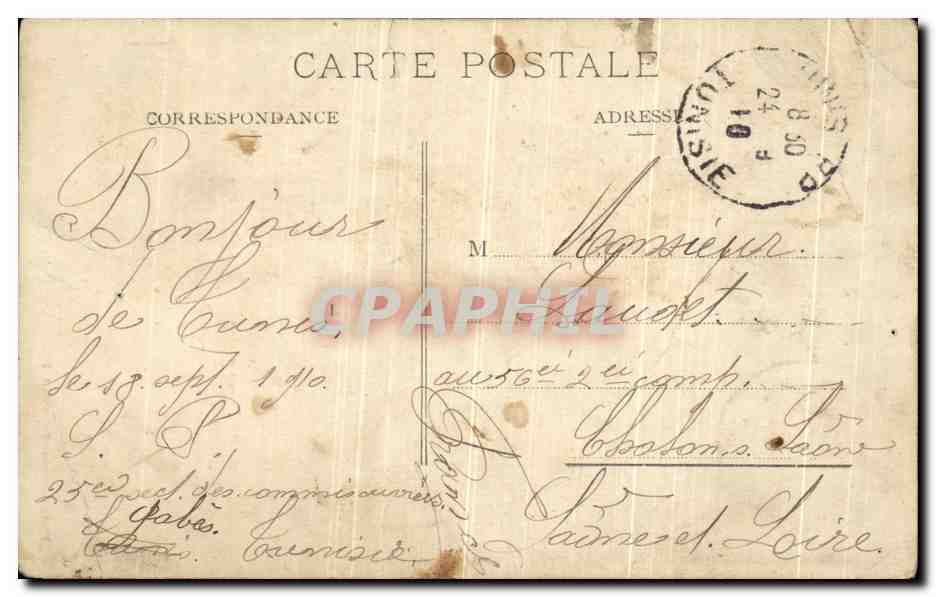 CARTE POSTALE
CORRESPONDANCE
ADRESSE
TUNIS RP
8 30
24
10
TUNISIE
Bonjour
de Tunis,
le 18 sept. 1910.
S. P.
25eii sect. des commis ouvriers.
Gabès.
Tunis. Tunisie
M Monsieur.
Laudet.
au 56eii 2eii comp.
Chalon s. Saône
Saône et Loire.
CPAPHIL